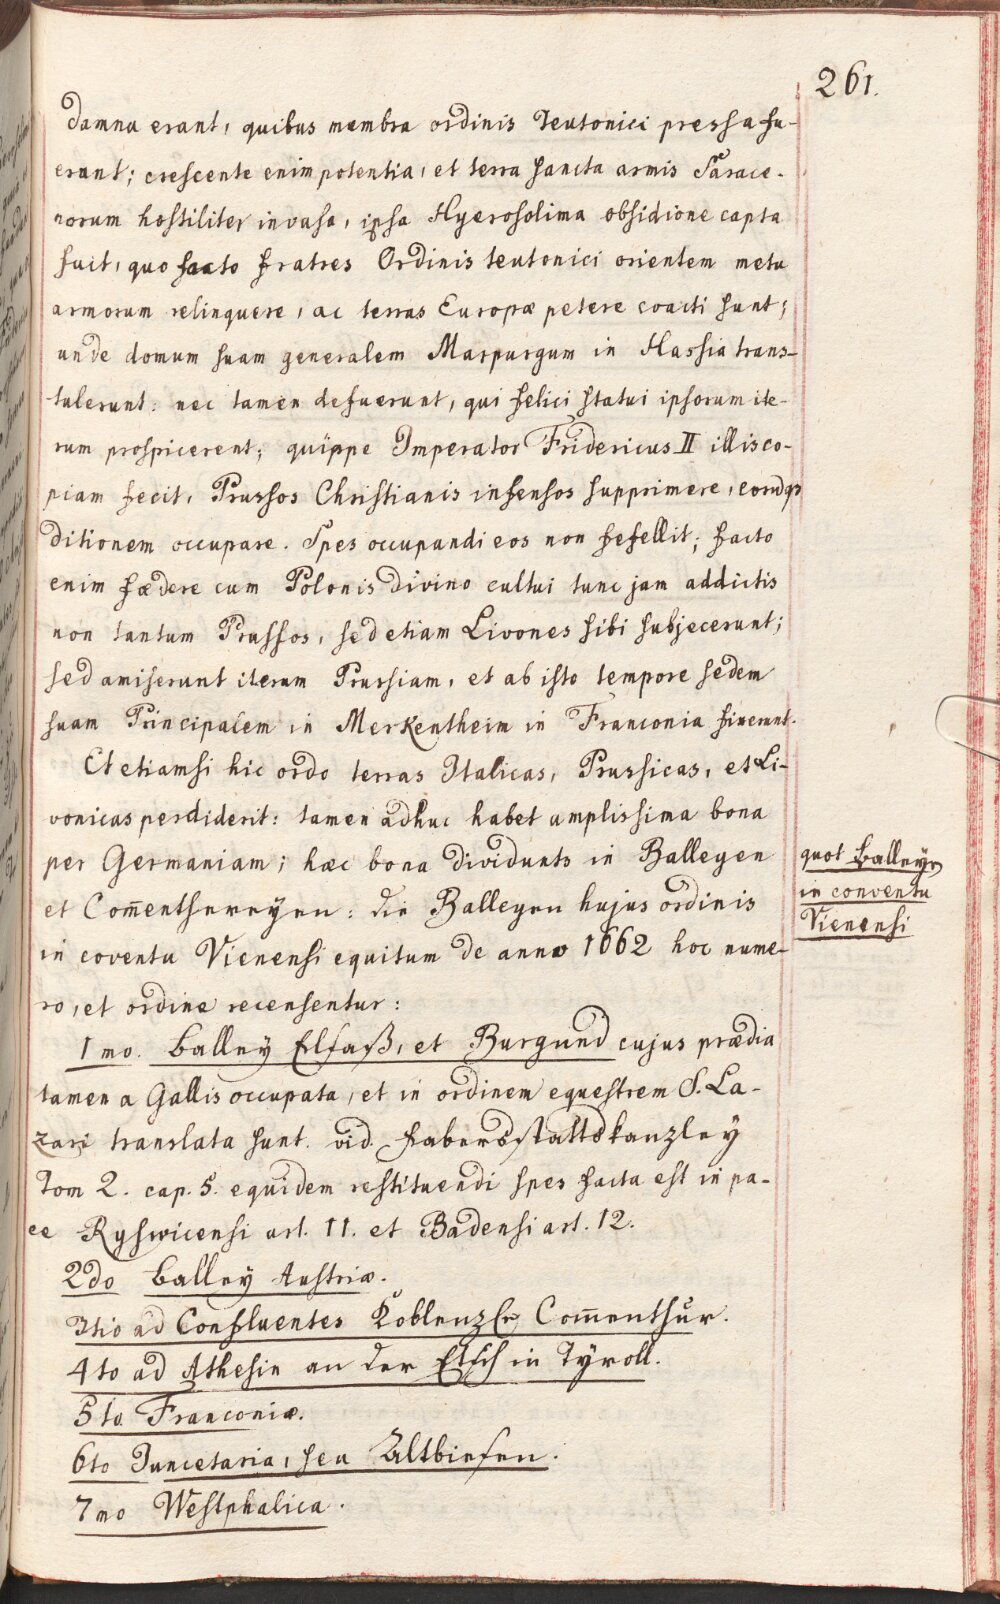 261.
damna erant, quibus membra ordinis Teutonici pressa fu-
erant; crescente enim potentia, et terra sancta armis Sarace-
norum hostiliter invasa, ipsa Hyerosolima obsidione capta
fuit, quo facto fratres Ordinis teutonici orientem metu
armorum relinquere, ac terras Europæ petere coacti sunt;
unde domum suam generalem Marpurgum in Hassia trans-
tulerunt: nec tamen defuerunt, qui felici statui ipsorum ite-
rum prospicerent; quippe Imperator Fridericus II illis co-
piam fecit, Prussos Christianis infensos supprimere, eorumq
ditionem occupare. Spes occupandi eos non fefellit; facto
enim fœdere cum Polonis divino cultui tunc jam addictis
non tantum Prussos, sed etiam Livones sibi subjecerunt;
sed amiserunt iterum Prussiam, et ab isto tempore sedem
suam Principalem in Merkentheim in Franconia fixerunt.
Et etiamsi hic ordo terras Italicas, Prussicas, et Li-
vonicas perdiderit: tamen adhuc habet amplissima bona
per Germaniam; hæc bona dividunts in Balleyen
et Com̅enthereyen: die Balleyen hujus ordinis
in coventu Vienensi equitum de anno 1662 hoc nume-
ro, et ordine recensentur:
quot Balleyen
in conventu
Vienensi
1mo. Balley Elsaß, et Burgund cujus prædia
tamen a Gallis occupata, et in ordinem equestrem S. La-
zari translata sunt. vid. Fabers stattskanzley
Tom 2. cap. 5. equidem restituendi spes facta est in pa-
ce Ryswicensi art. 11. et Badensi art. 12.
2do Balley Austriæ.
3tio ad Confluentes Koblenzer Com̅enthur.
4to ad Athesin an der Etsch in Tÿroll.
5to. Franconiæ.
6to Juncetaria, seu Altbiesen.
7mo Westphalica.